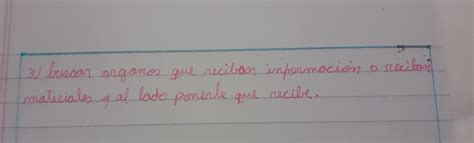 3) buscar organos que reciban información o reciban
materiales y al lado ponerle que recibe.